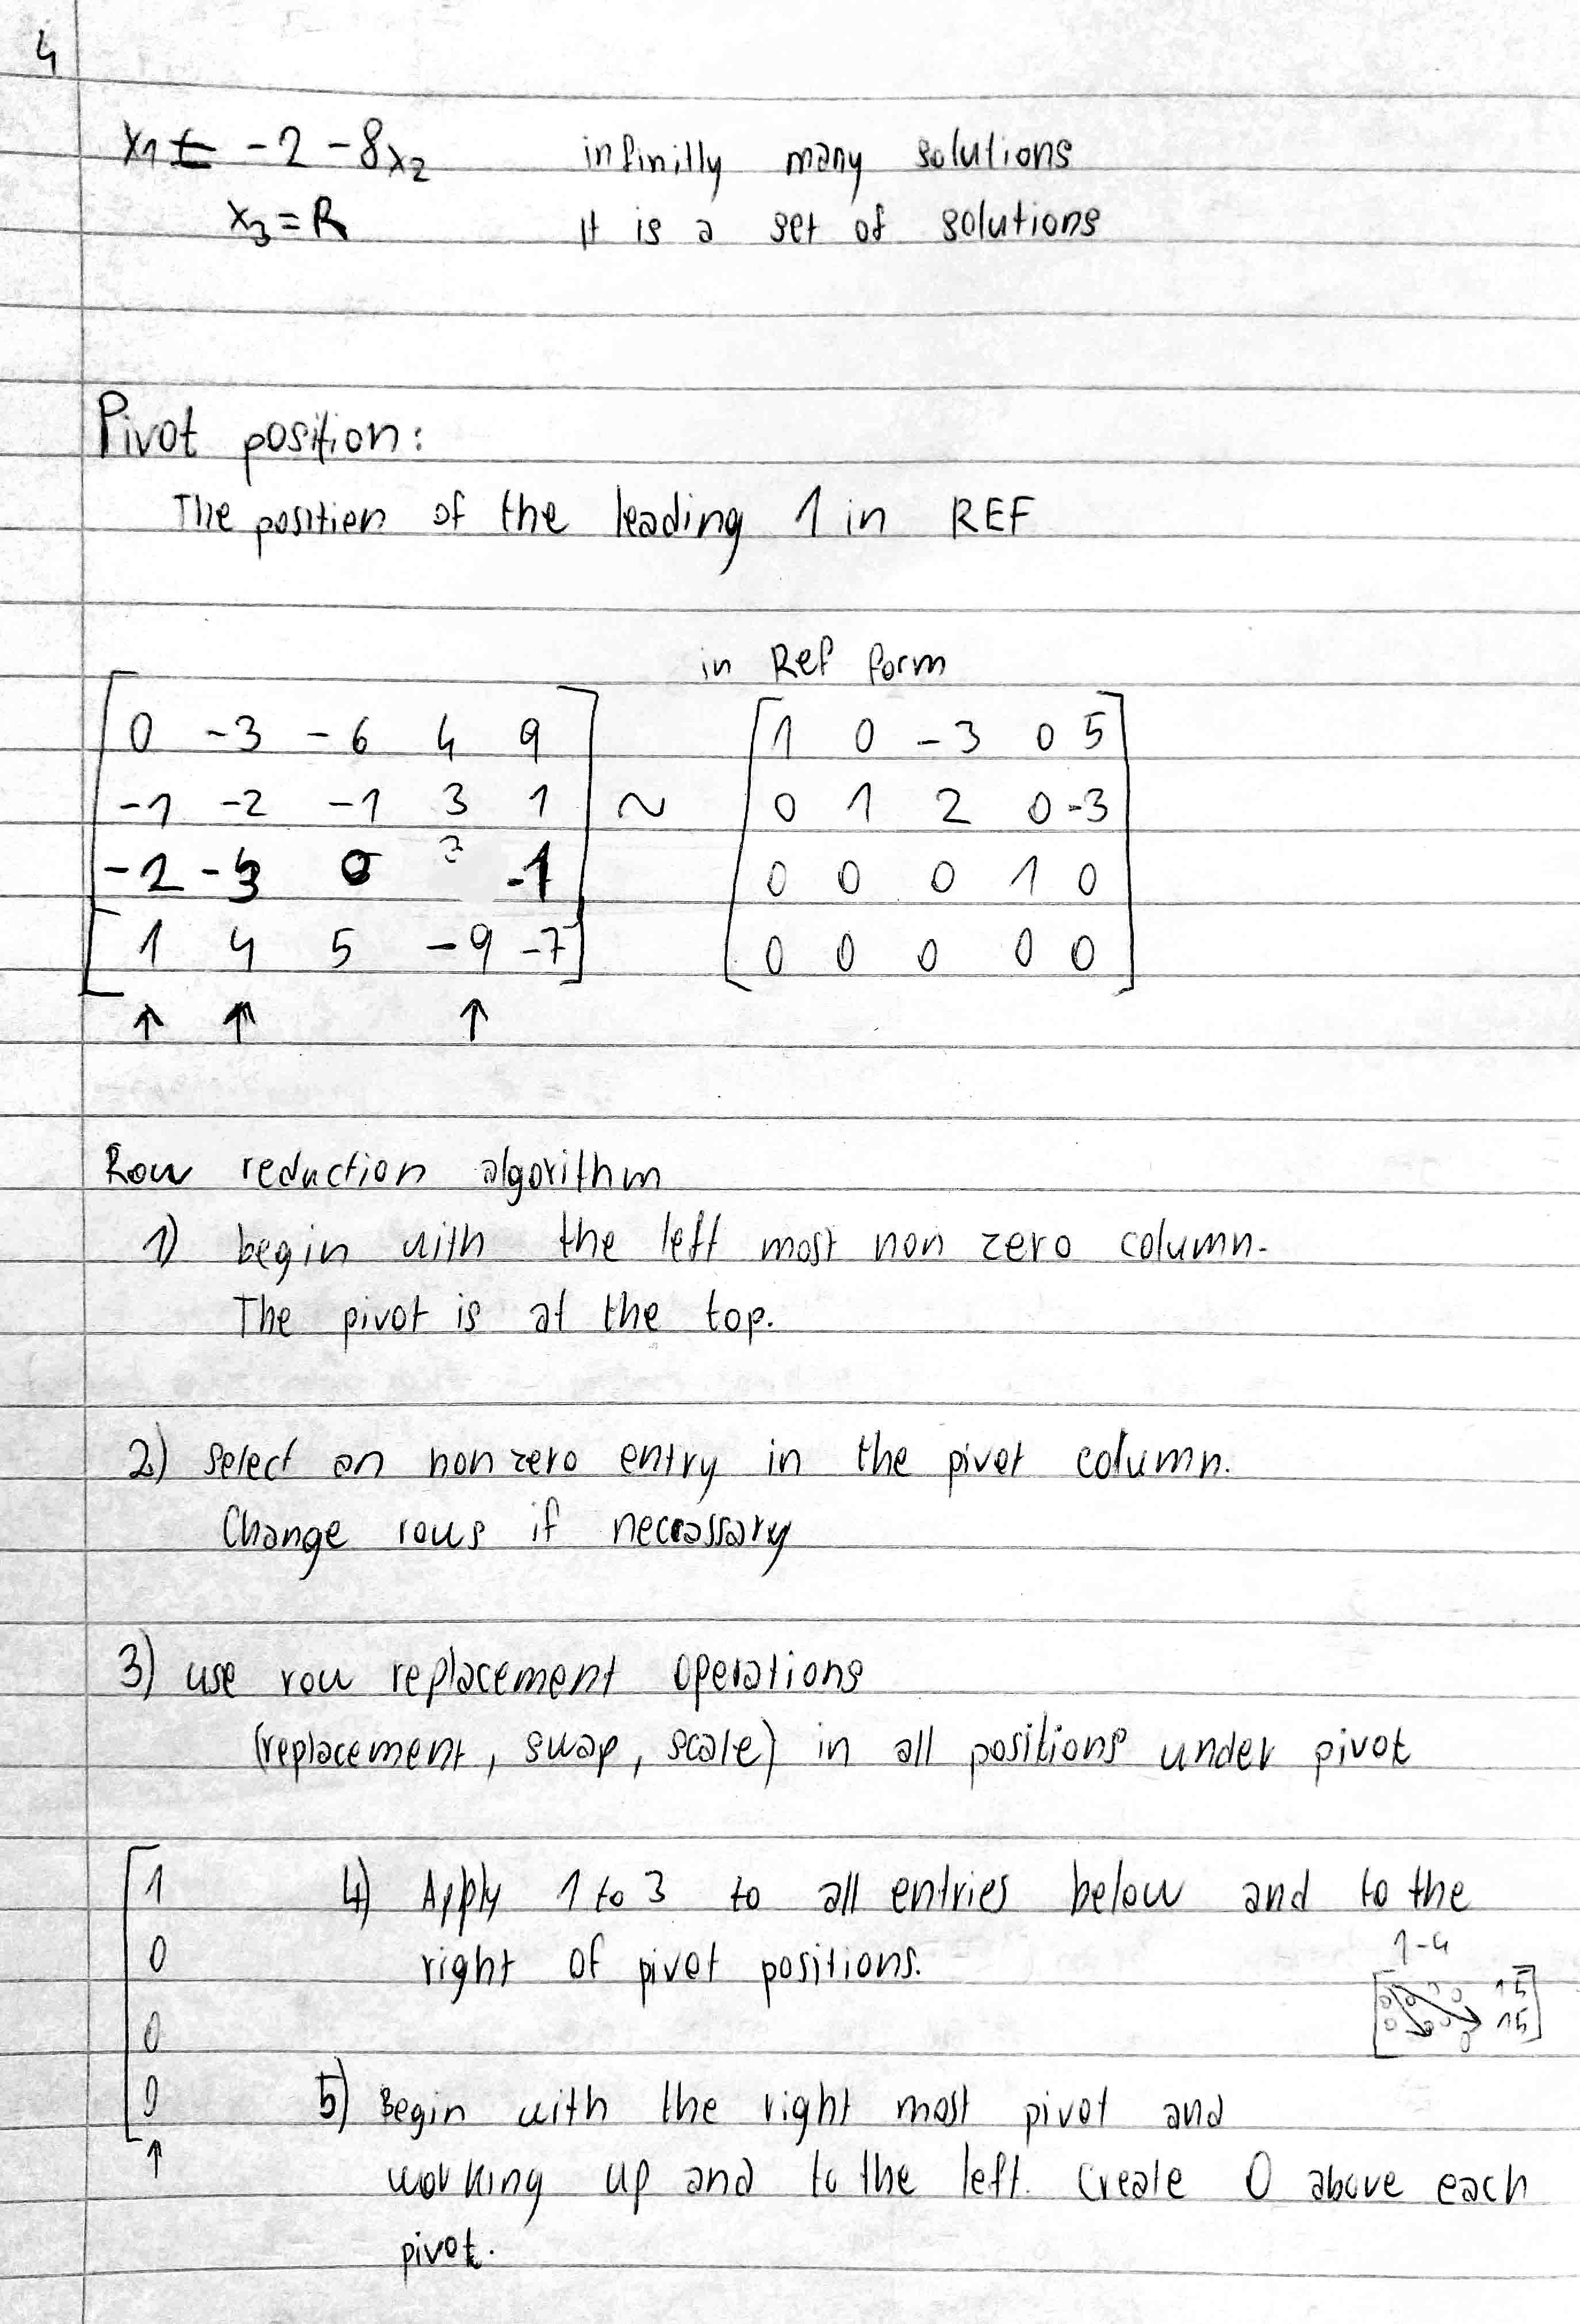 4
x1 = -2 - 8x2 infinilly many solutions
x3 = R It is a set of solutions
Pivot position:
The position of the leading 1 in REF
in Ref form
0 -3 -6 4 9 1 0 -3 0 5
-1 -2 -1 3 1 ~ 0 1 2 0 -3
-2 -3 0 -1 0 0 0 1 0
1 4 5 -9 -7 0 0 0 0 0
↑ ↑ ↑
Row reduction algorithm
1) begin with the left most non zero column.
The pivot is at the top.
2) select an non zero entry in the pivot column.
Change rows if necessary
3) use row replacement operations
(replacement, swap, scale) in all positions under pivot
1 4) Apply 1 to 3 to all entries below and to the
0 right of pivot positions.
1-4
0
0 5) Begin with the right most pivot and
↑ working up and to the left. Create 0 above each
pivot.